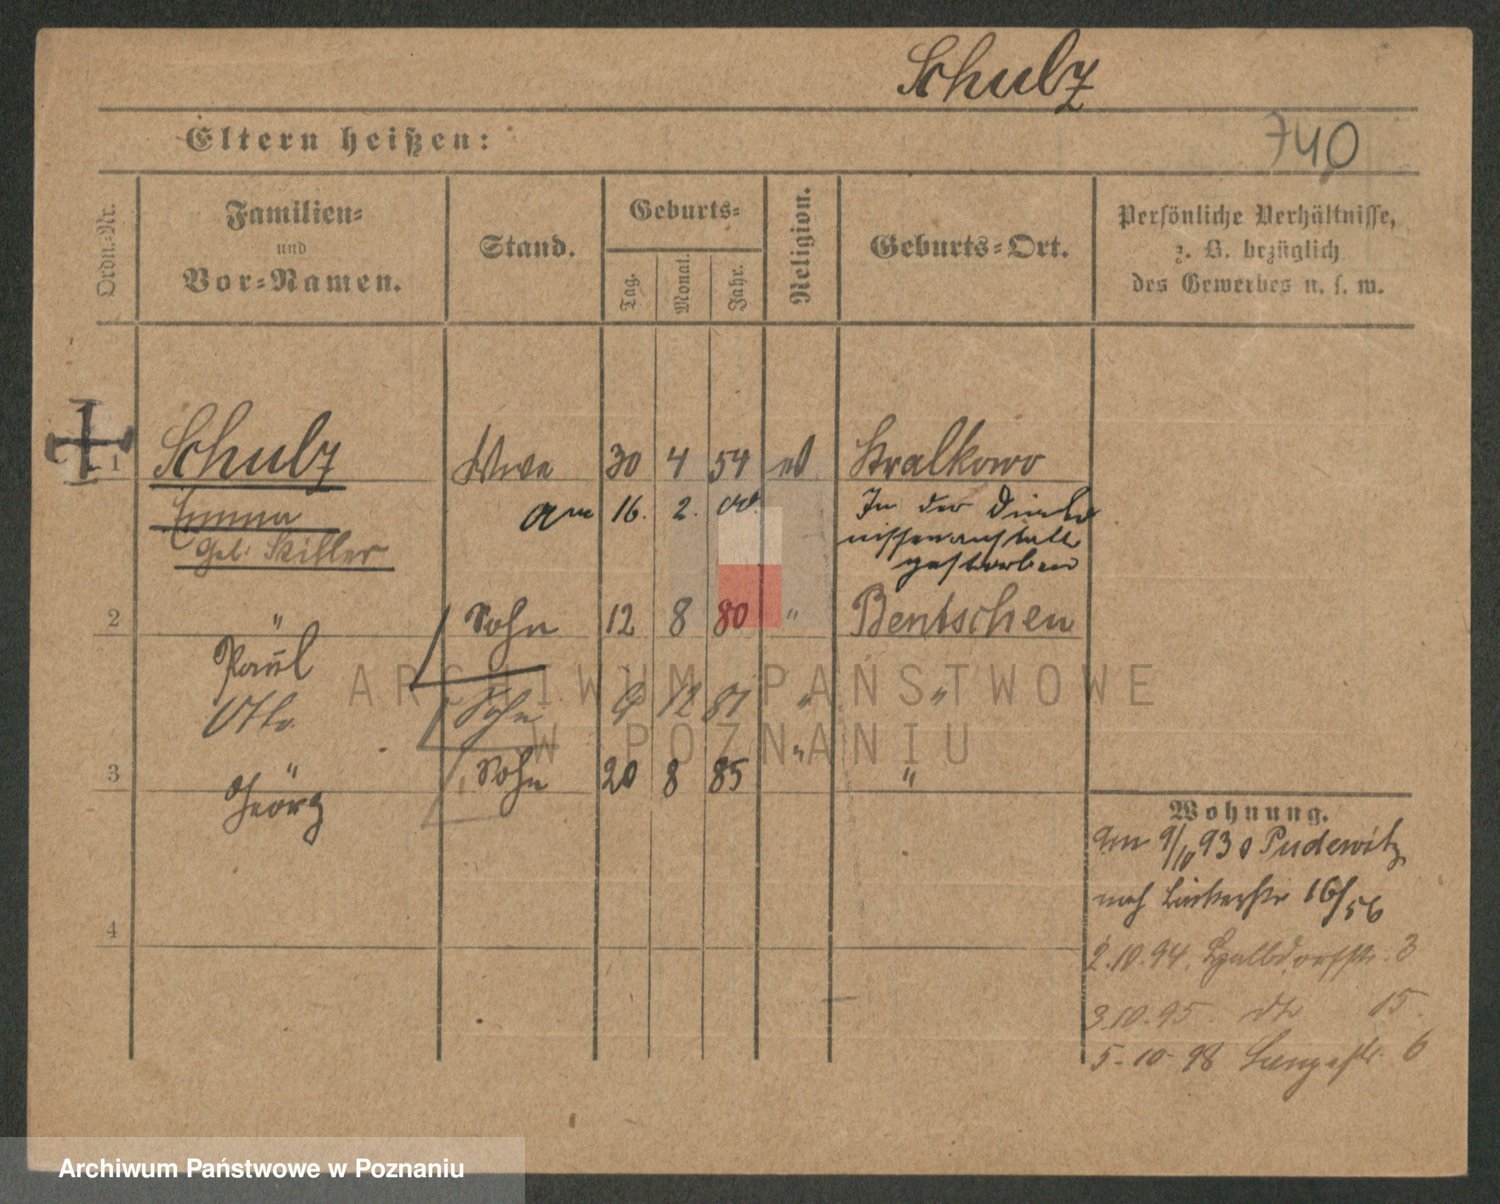 Schulz
Eltern heißen:
740
Ordn.-Nr.
Familien-
und
Vor-Namen.
Stand.
Geburts-
Tag.
Monat.
Jahr.
Religion.
Geburts-Ort.
Persönliche Verhältnisse,
z. B. bezüglich
des Gewerbes u. s. w.
1 Schulz Wwe 30 4 54 ev Stralkowo
Emma am 16. 2. 00. In der Diako
geb: nissenanstalt
gestorben
2 " Sohn 12 8 80 " Bentschen
Paul
Otto Sohn 9 12 81 " "
3 " Sohn 20 8 85 " "
Georg
4
Wohnung.
Am 9/11 93 v Pudewitz
nach 16/56
2.10.94. Halbdorfstr. 3
3.10.95. dto 15.
5-10-98 Langestr. 6
ARCHIWUM PAŃSTWOWE
W POZNANIU
Archiwum Państwowe w Poznaniu